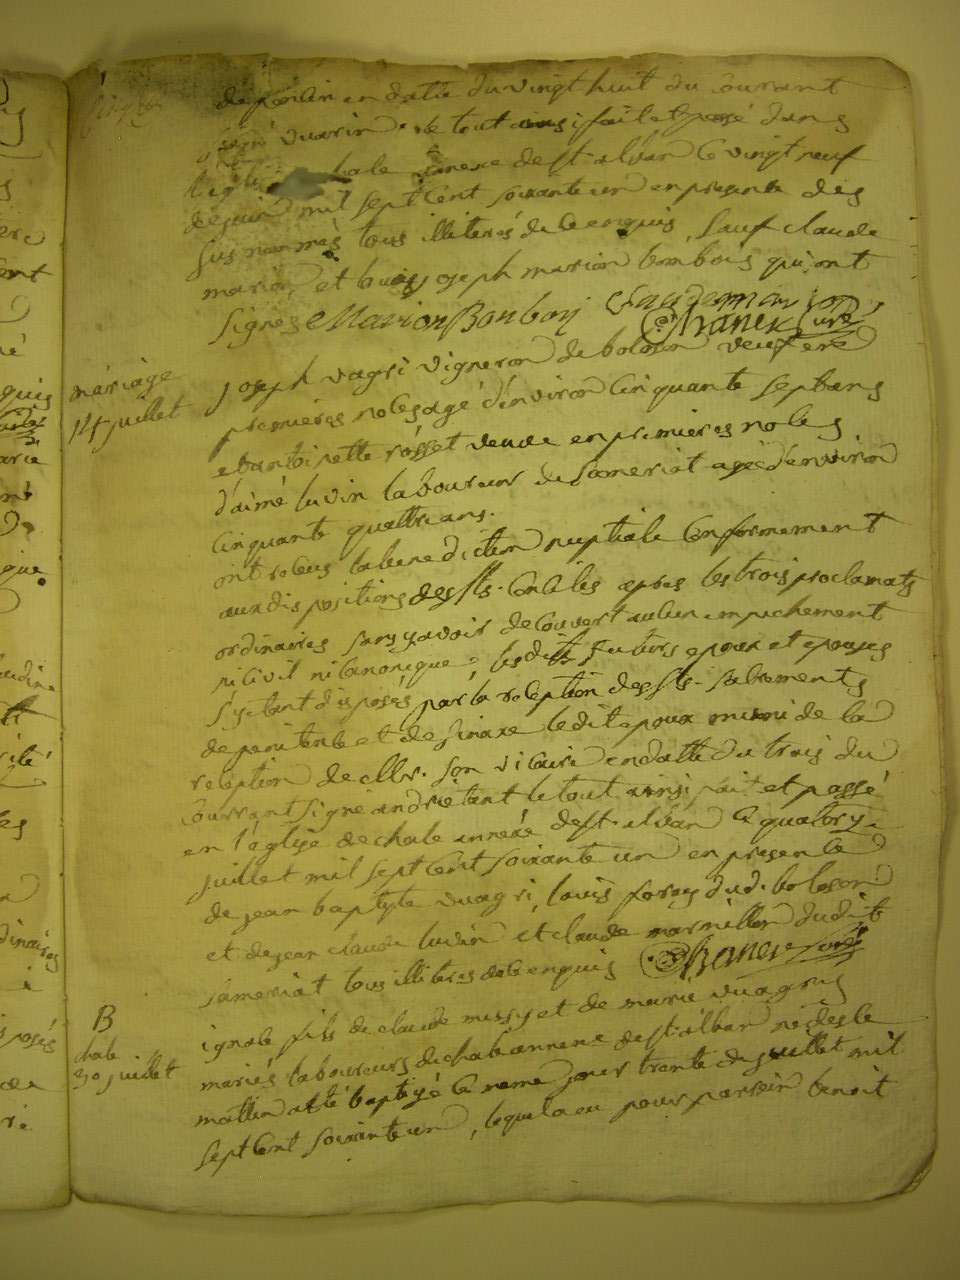 de poulin en datte du vingt huit du courrant
signé vuarin. le tout ainsi fait et passé dans
l'eglise chale annexe de st alban le vingt neuf
de juin mil sept cent soixante un en presence des
sus nommés tous illiterés de ce enquis, sauf claude
marion et louis joseph marion bonbois qui ont
signés Marion Bonboy Claude marion
Chanel curé
mariage
14 juillet
joseph vagri vigneron de boloson veuf en
premieres noces agé d'environ cinquante sept ans
et antoinette rosset veuve en premieres noces
d'aimé luvin laboureur de Sameriat agée d'environ
cinquante quattre ans.
ont recus la benediction nuptiale conformement
aux dispositions des sts. conciles apres les trois proclamats
ordinaires sans y avoir decouvert aucun empechement
ni civil ni canonique, lesdits futurs epoux et epouses
s'y etant disposés par la reception des sts. sacrements
de penitence et de sinaxe ledit epoux muni de la
reception de Mr. son vicaire en datte du trois du
courrant signé andre tant le tout ainsi fait et passé
en l'eglise de chale annexe de st. alban le quatorze
juillet mil sept cent soixante un en presence
de jean baptiste vuagri, louis forey dud. boloson
et de jean claude luvin et claude marmillon dudit
sameriat tous illitres de ce enquis Chanel curé
B
chale
30 juillet
ignace fils de claude missy et de marie vuagris
mariés laboureurs de chale annexe de st. alban né des le
mattin a eté baptizé le meme jour trente de juillet mil
sept cent soixante un, lequel a eu pour parrein benoit